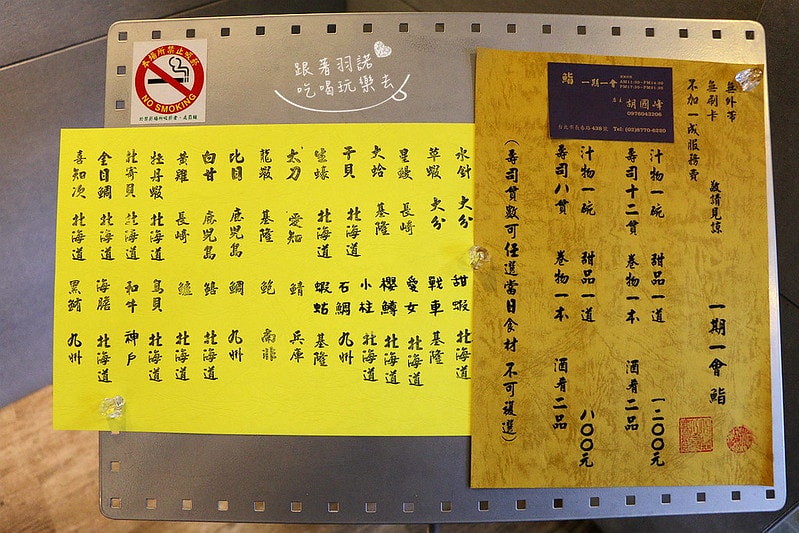 本場所禁止吸菸
NO SMOKING
跟著羽諾
吃喝玩樂去
鮨 一期一會
AM11:30~PM14:30
PM17:30~PM21:30
胡國峰
0976043206
Tel: (02)8770-6250
無外帶
無刷卡
不加一成服務費
敬請見諒
一期一會 鮨
汁物一碗 甜品一道 一二〇〇元
壽司十二貫 卷物一本 酒肴二品
汁物一碗 甜品一道 八〇〇元
壽司八貫 卷物一本 酒肴二品
(壽司貫數可任選當日食材 不可複選)
水針 大分 甜蝦 北海道
草蝦 大分 戰車 基隆
星鰻 長崎 愛女 北海道
大蛤 基隆 櫻鱒 北海道
干貝 北海道 小柱 北海道
石鯛 九州
生蠔 北海道 蝦蛄 基隆
太刀 愛知 鯖 兵庫
龍蝦 基隆 鮑 南非
比目 鹿兒島 鯛 九州
白甘 鹿兒島 北海道
黃雞 長崎 北海道
牡丹蝦 北海道 鳥貝 北海道
北寄貝 北海道 和牛 神戶
金目鯛 北海道 海膽 北海道
喜知次 北海道 黑鮪 九州